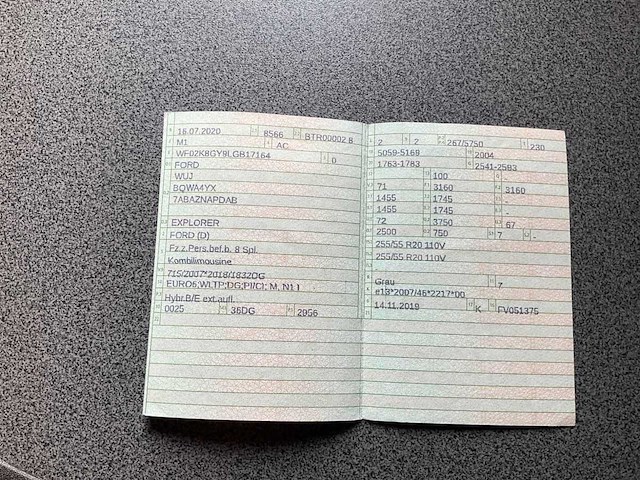 16.07.2020 8566 BTR00002 8
M1 AC
WF02K8GY9LGB17164 0
FORD
WUJ
BQWA4YX
7ABAZNAPDAB
EXPLORER
FORD (D)
Fz.z.Pers.bef.b. 8 Spl.
Kombilimousine
715/2007*2018/1832DG
EURO6;WLTP;DG;PI/CI; M, N1 I
Hybr.B/E ext.aufl.
0025 36DG 2956
2 2 267/5750 230
5059-5169 2004
1763-1783 2541-2583
100 -
71 3160 3160
1455 1745 -
1455 1745 -
72 3750 67
2500 750 7 -
255/55 R20 110V
255/55 R20 110V
Grau 7
e13*2007/46*2217*00
14.11.2019 K FV051375